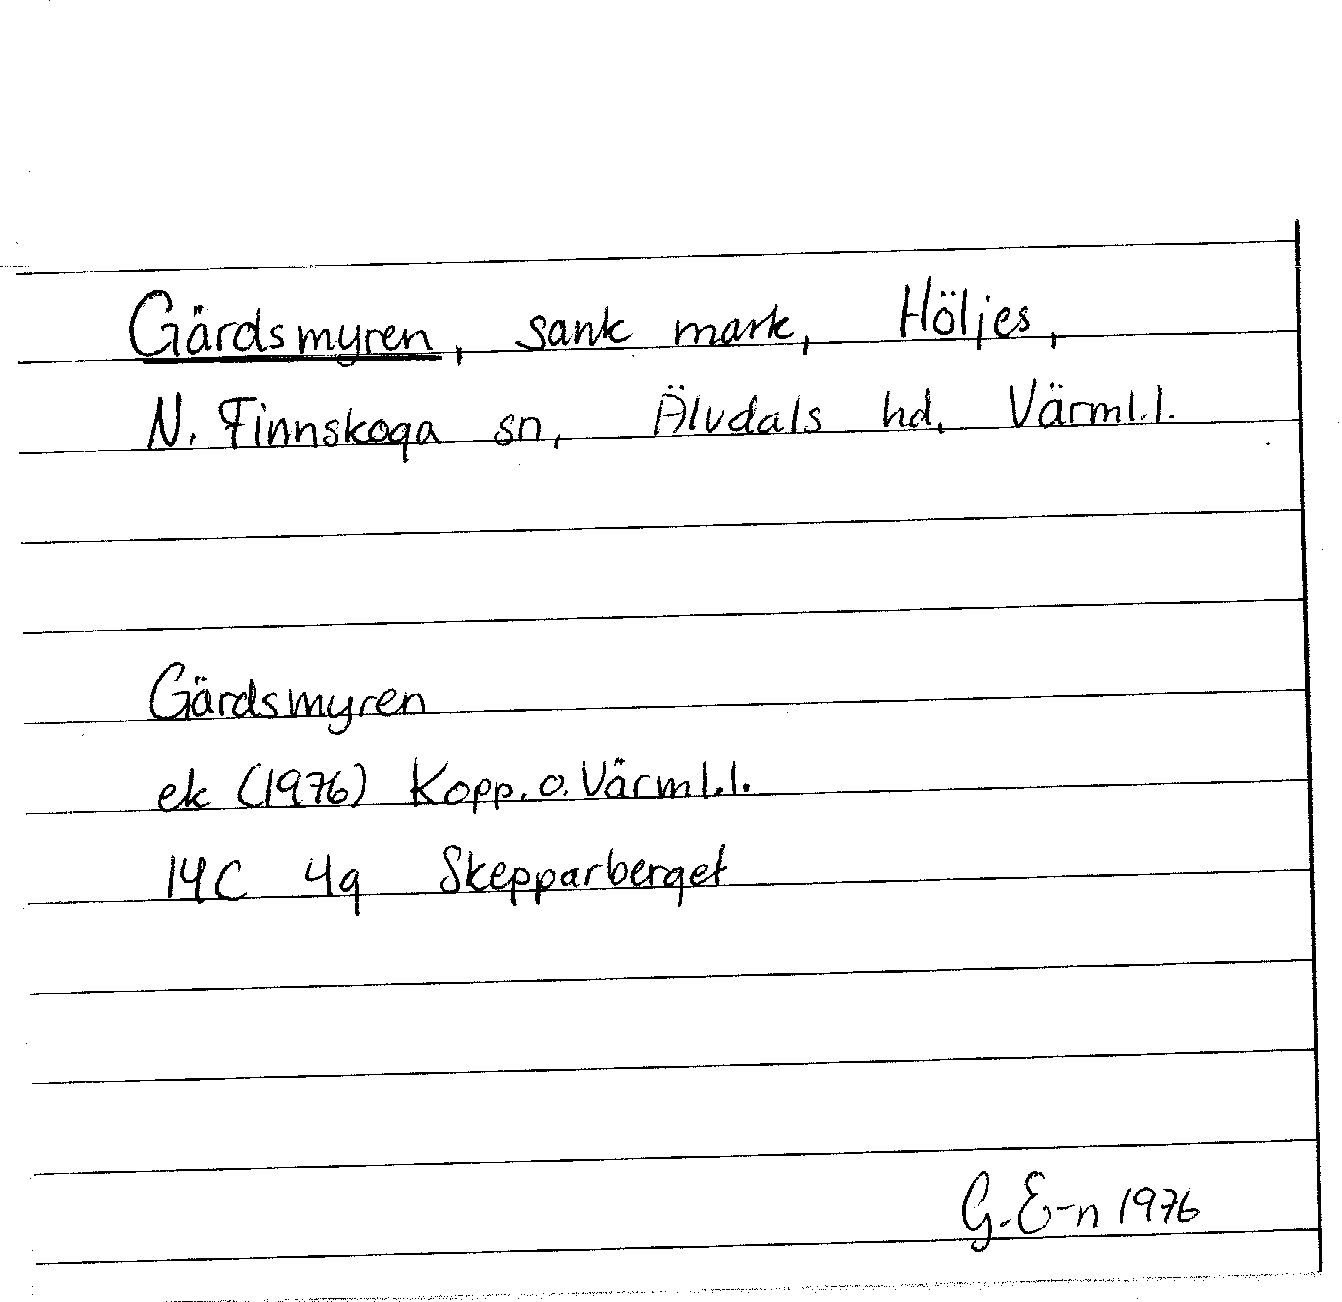 Gärdsmyren, sank mark, Höljes,
N. Finnskoga sn, Älvdals hd, Värml.l.
Gärdsmyren
ek (1976) Kopp. o. Värml.l.
14C 4g Skepparberget
G. E-n 1976